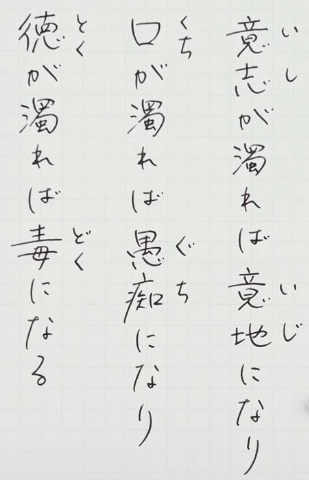 意志が濁れば意地になり
いし
いじ
口が濁れば愚痴になり
くち
ぐち
徳が濁れば毒になる
とく
どく